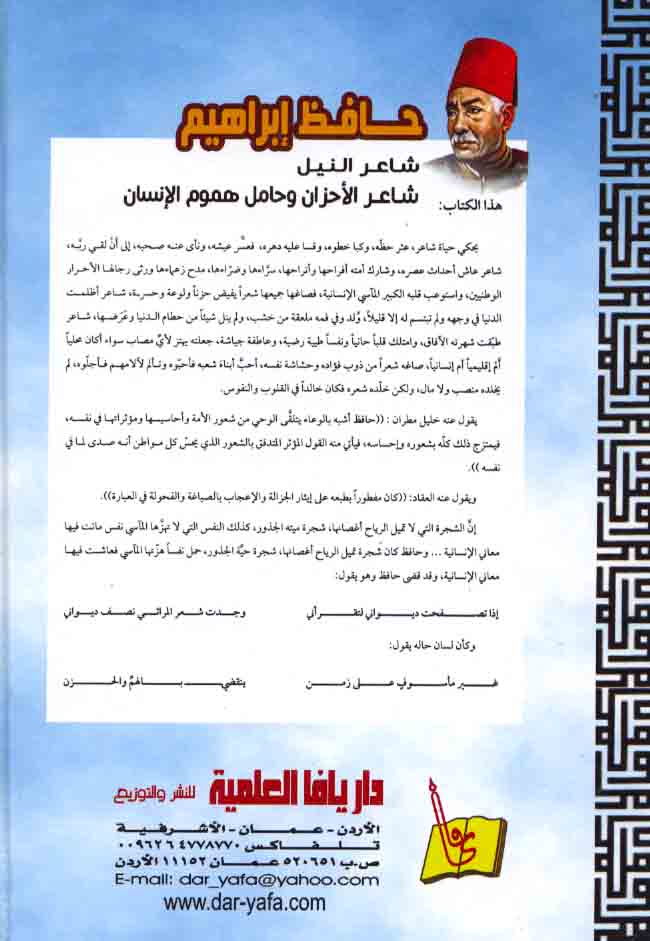 حافظ إبراهيم
شاعر النيل
شاعر الأحزان وحامل هموم الإنسان
هذا الكتاب:
يحكي حياة شاعر، عثر حظّه، وكبا خطوه، وقسا عليه دهره، فعسُر عيشه، ونأى عنه صحبه، إلى أنْ لقي ربَّه،
شاعر عاش أحداث عصره، وشارك أمته أفراحها وأتراحها، سرَّاءها وضرَّاءها، مدح زعماءها ورثى رجالها الأحرار
الوطنيين، واستوعب قلبه الكبير المآسي الإنسانية، فصاغها جميعها شعراً يفيض حزناً ولوعة وحسرة، شاعر أظلمت
الدنيا في وجهه ولم تبتسم له إلا قليلاً، وُلد وفي فمه ملعقة من خشب، ولم ينل شيئاً من حطام الدنيا وعَرَضها، شاعر
طبّقت شهرته الآفاق، وامتلك قلباً حانياً ونفساً طيبة رضية، وعاطفة جياشة، جعلته يهتز لأيِّ مصاب سواء أكان محلياً
أمْ إقليمياً أم إنسانياً، صاغه شعراً من ذوب فؤاده وحشاشة نفسه، أحبَّ أبناءَ شعبه فأحبّوه وتألم لآلامهم فأجلّوه، لم
يخلده منصب ولا مال، ولكن خلّده شعره فكان خالداً في القلوب والنفوس.
يقول عنه خليل مطران : ((حافظ أشبه بالوعاء يتلقَّى الوحي من شعور الأمة وأحاسيسها ومؤثراتها في نفسه،
فيمتزج ذلك كلّه بشعوره وإحساسه، فيأتي منه القول المؤثر المتدفق بالشعور الذي يحسّ كل مواطن أنه صدى لما في
نفسه )).
ويقول عنه العقاد: ((كان مفطوراً بطبعه على إيثار الجزالة والإعجاب بالصياغة والفحولة في العبارة)).
إنَّ الشجرة التي لا تميل الرياح أغصانها، شجرة ميته الجذور، كذلك النفس التي لا تهزّها المآسي نفس ماتت فيها
معاني الإنسانية ... وحافظ كان شجرة تميل الرياح أغصانها، شجرة حيَّة الجذور، حمل نفساً هزّتها المآسي فعاشت فيها
معاني الإنسانية، وقد قضى حافظ وهو يقول:
إذا تصفحت ديواني لتقرأني وجدت شعر المراثي نصف ديواني
وكأن لسان حاله يقول:
غير مأسوف على زمن ينقضي بالهمّ والحزن
دار يافا العلمية للنشر والتوزيع
الأردن - عمان - الأشرفية
تلفاكس ٠٠٩٦٢٦٤٧٧٨٧٧٠
ص.ب ٥٢٠٦٥١ عمان ١١١٥٢ الأردن
E-mail: dar_yafa@yahoo.com
www.dar-yafa.com